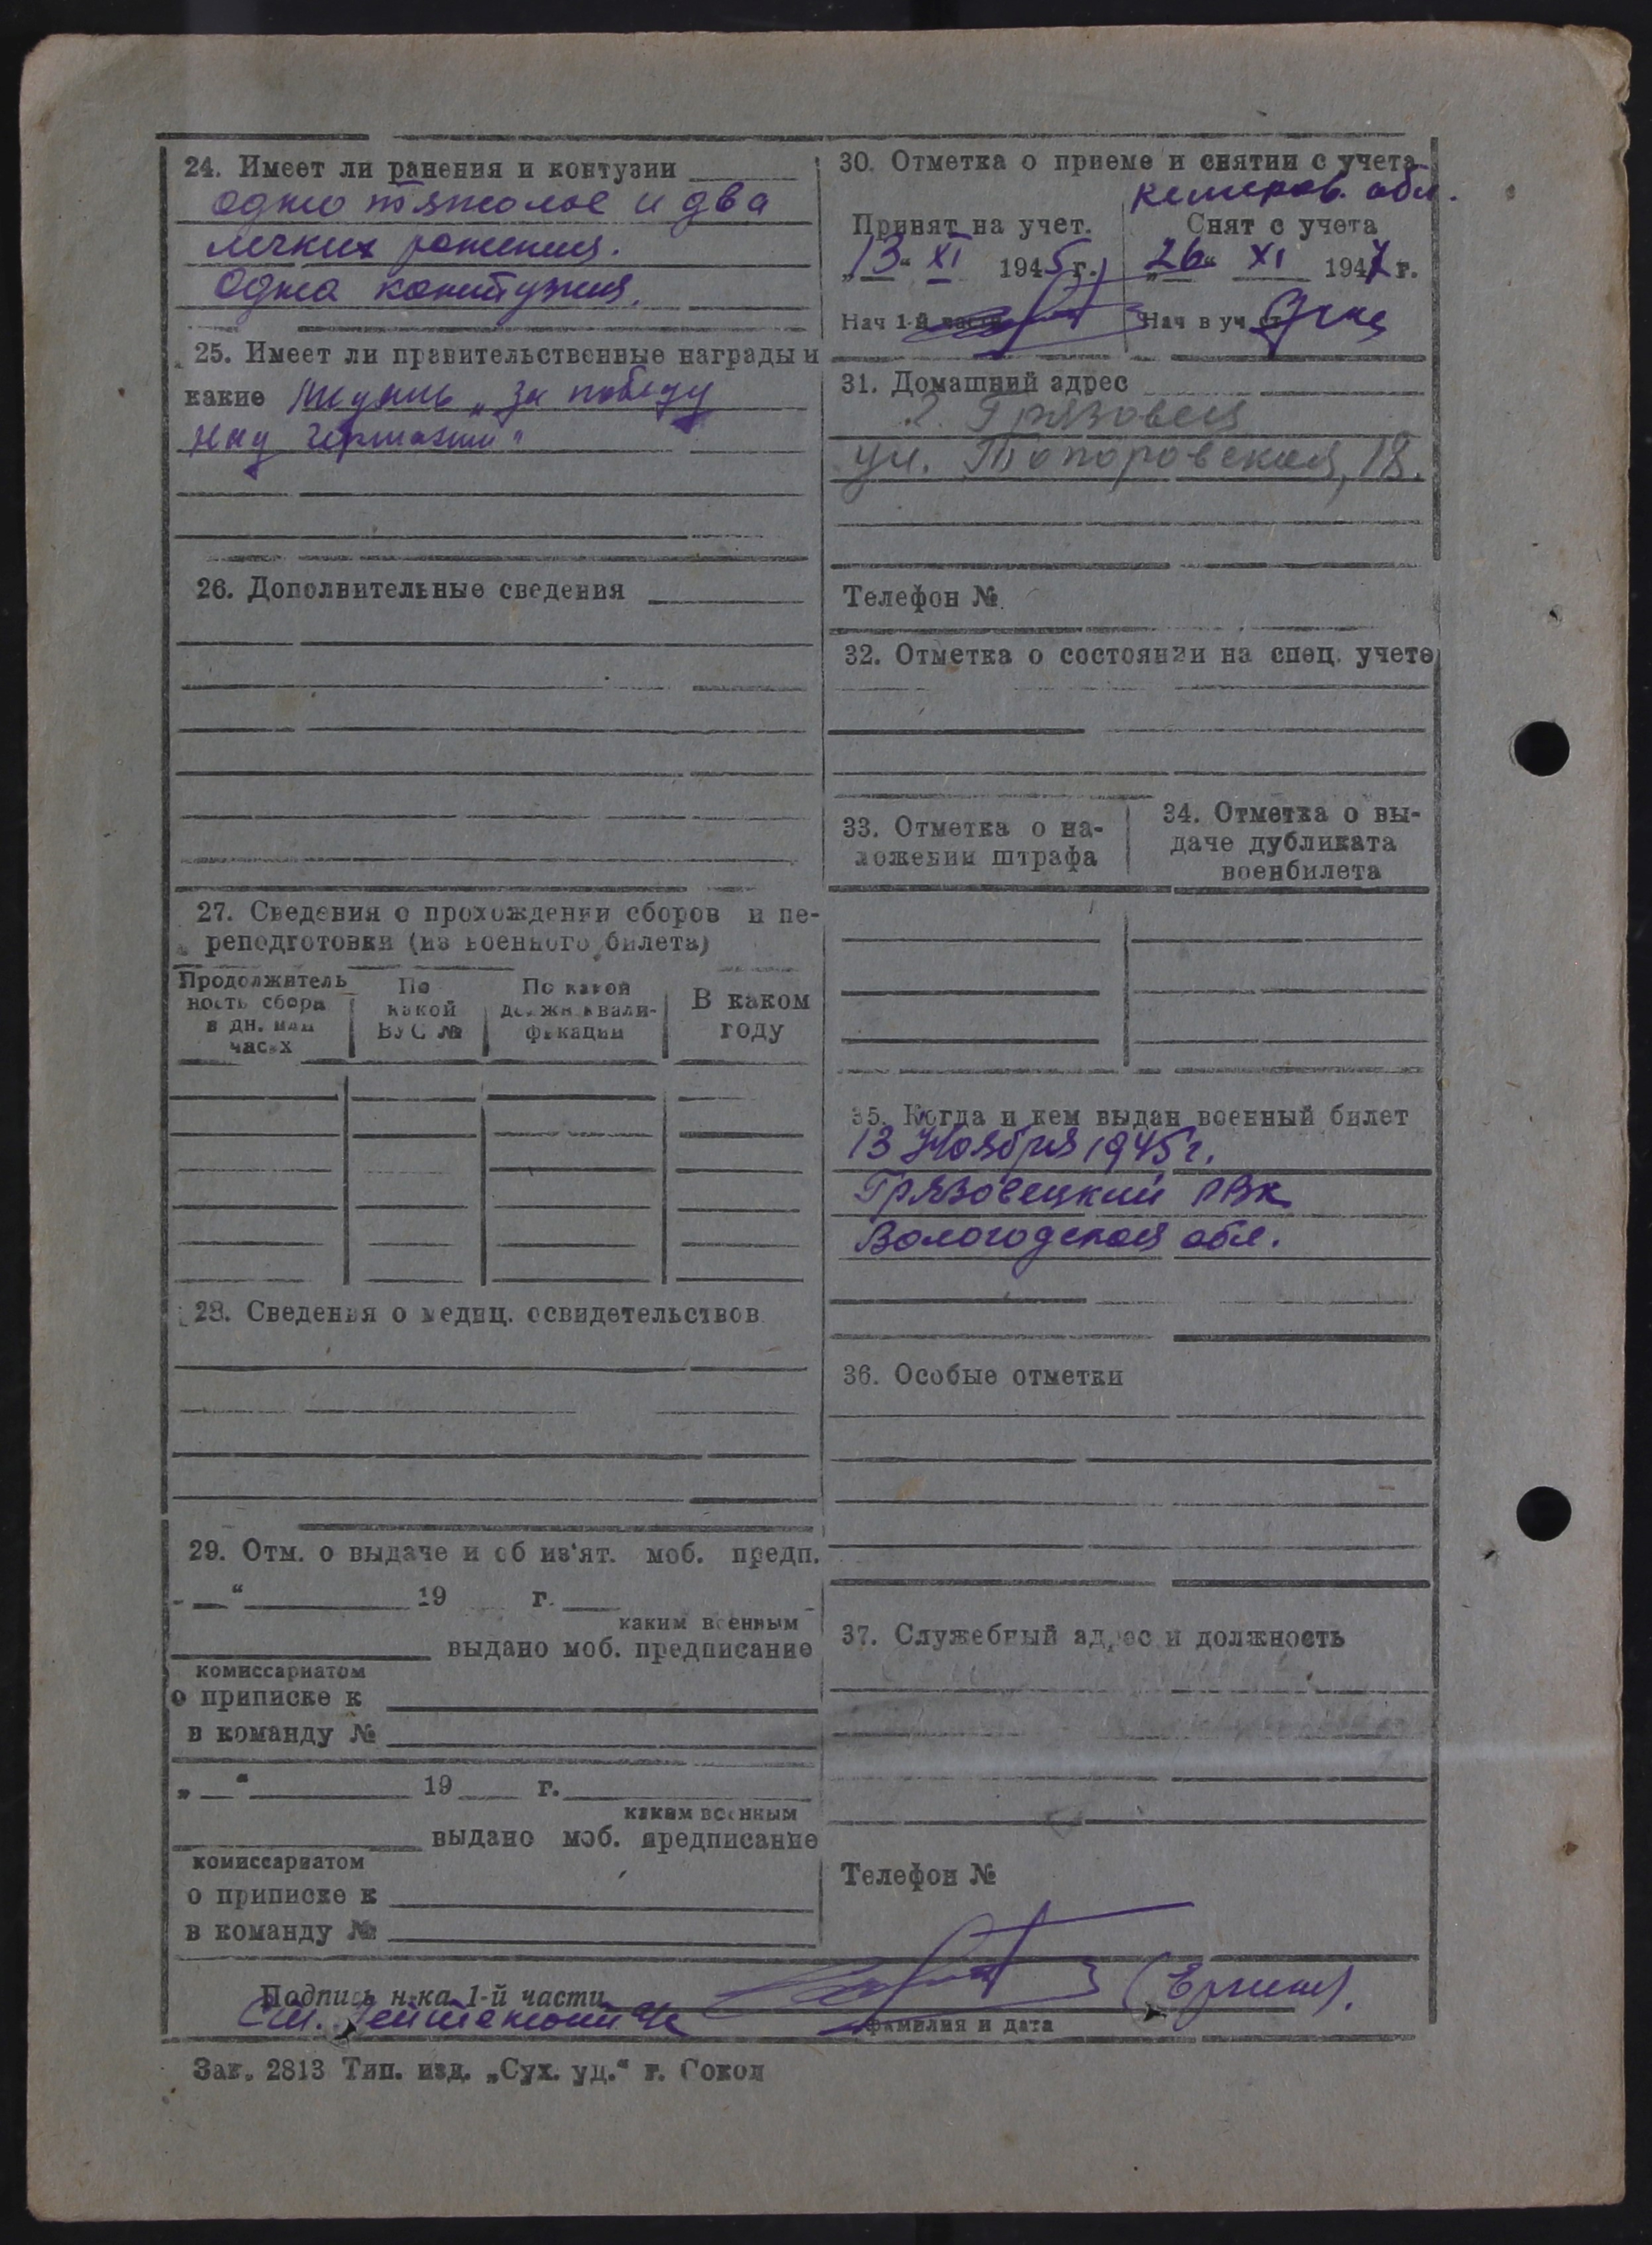 24. Имеет ли ранения и контузии
одно тяжолое и два
легких ранения.
Одна контузия.
25. Имеет ли правительственные награды и
какие Медаль „За победу
над Германии"
26. Дополнительные сведения
27. Сведения о прохождении сборов и пе-
реподготовки (из военного билета)
Продолжитель
ность сбора
в дн. или
часах
По
какой
ВУС №
По какой
должн квали-
фикации
В каком
году
28. Сведения о медиц. освидетельствов.
29. Отм. о выдаче и об из'ят. моб. предп.
„ “ 19 г.
каким военным
выдано моб. предписание
комиссариатом
о приписке к
в команду №
„ “ 19 г.
каким военным
выдано моб. предписание
комиссариатом
о приписке к
в команду №
30. Отметка о приеме и снятии с учета
Кемеров. обл.
Принят на учет.
„13“ XI 1945 г.
Нач 1-й части
Снят с учета
„26“ XI 1947 г.
Нач в уч ст
31. Домашний адрес
г. Грязовец
ул. Топоровская, 18.
Телефон №
32. Отметка о состоянии на спец. учете
33. Отметка о на-
ложении штрафа
34. Отметка о вы-
даче дубликата
военбилета
35. Когда и кем выдан военный билет
13 Ноября 1945 г.
Грязовецкий РВК
Вологодская обл.
36. Особые отметки
37. Служебный адрес и должность
Телефон №
Подпись н-ка 1-й части
Ст. Лейтенант
фамилия и дата
Зак. 2813 Тип. изд. „Сух. уц.“ г. Сокол